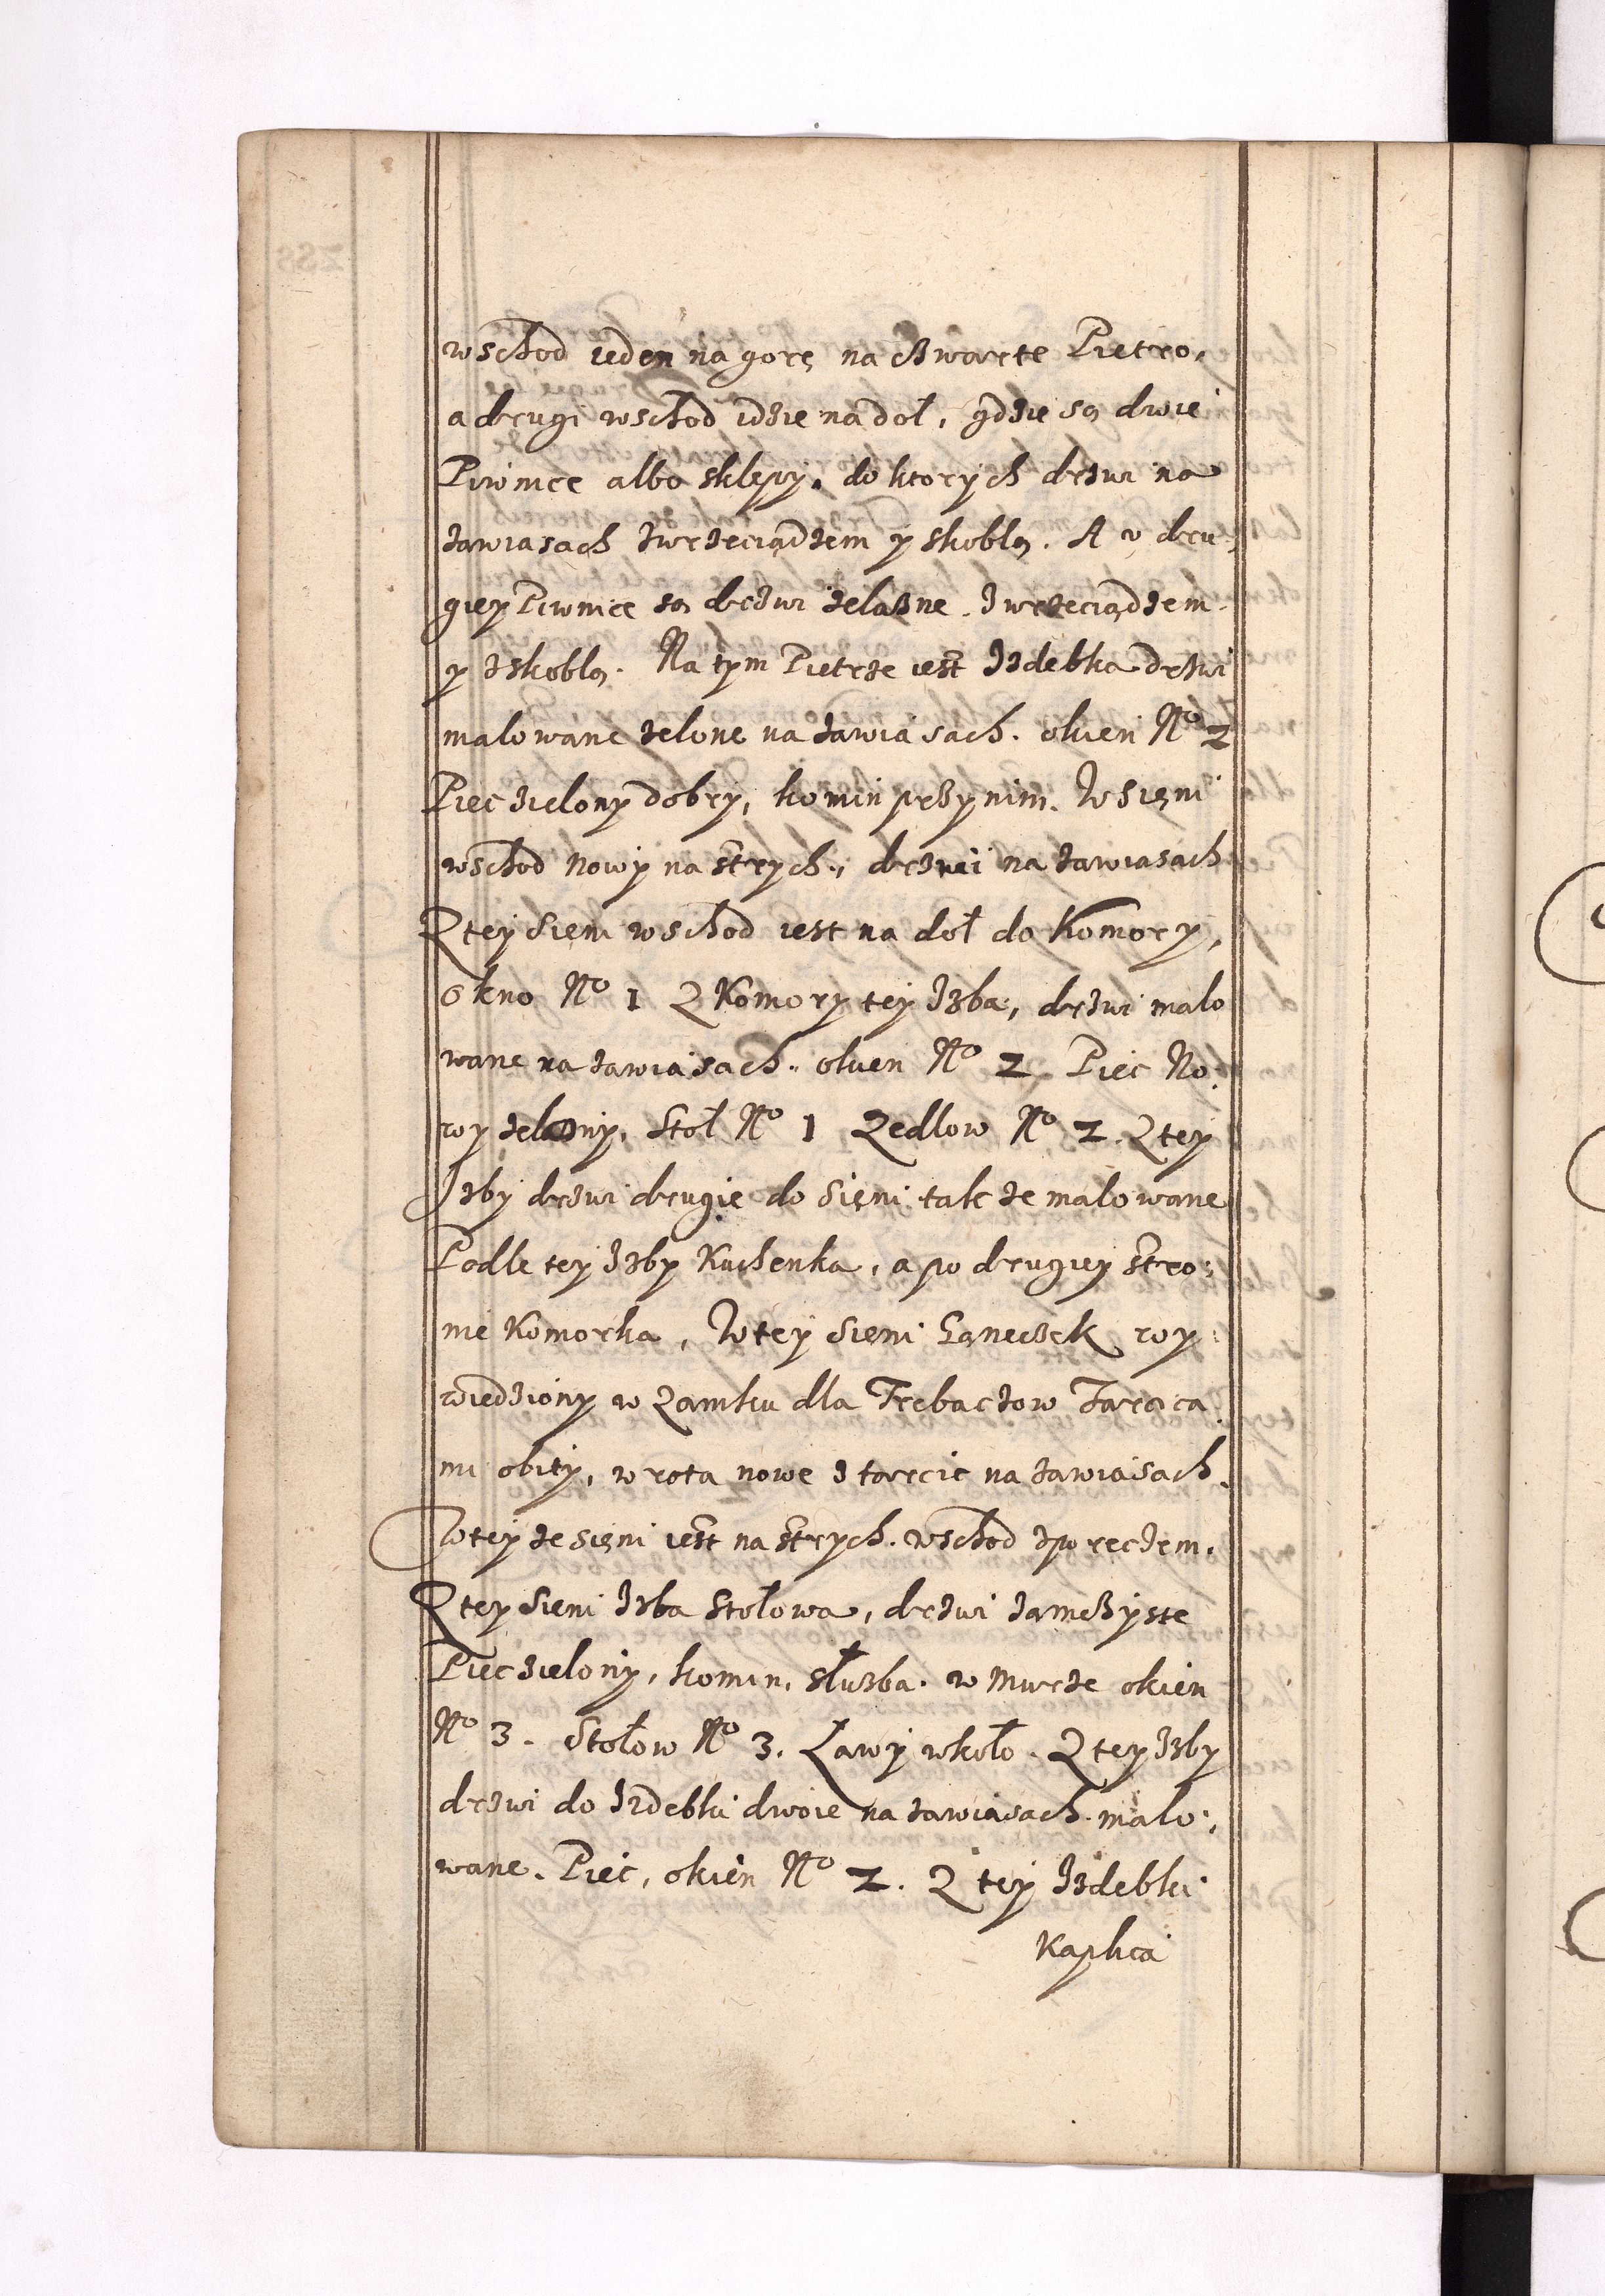 wschod ieden na gorę na czwarte Pietro,
a drugi wschod idzie na doł, gdzie są dwie
Piwnice albo sklepy, do ktorych drzwi na
zawiasach zwrzeciądzem y skoblą. A v dru:
giey Piwnice są drzwi zelazne, zwrzeciądzem
y zskoblą. Na tym Pietrze iest Izdebka drzwi
malowane zelone na zawiasach. okien No 2
Piec zielony dobry, komin przynim. W sięni
wschod nowy na strych, drzwi na zawiasach
Z tey sieni wschod iest na doł do Komory,
okno No 1 Z Komory tey Izba, drzwi malo
wane na zawiasach. okien No 2. Piec No:
wy zelazny, Stoł No 1 Zedlow No 2. Z tey
Izby drzwi drugie do sięni takze malowane
Podle tey Izby Kuchenka, a po drugiey stro:
nie Komorka, W tey sieni Ganeczek wy:
wiedziony w Zamku dla Trebaczow Tarcica:
mi obity, wrota nowe z tarcic na zawiasach.
W teyze sięni iest na strych wschod zporeczem.
Z tey sieni Izba stołowa, drzwi zamczyste
Piec zielony, komin, słuzba w murze okien
No 3. Stołow No 3. Ławy wkoło. Z tey Izby
drzwi do Izdebki dwoie na zawiasach malo:
wane. Piec, okien No 2. Z tey Izdebki
Kaplica